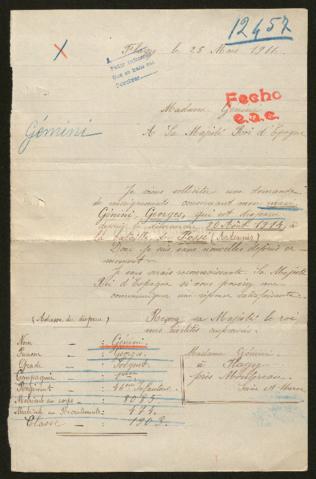 12457
Flagy le 25 Mars 1916
Madame Gémini
Fecho
A Sa Majesté Roi d'Espagne
e.a.e.
Gémini
Je vous sollicite une demande
de renseignements concernant mon mari
Gémini Georges, qui est disparu
depuis le 26 Août 1914, à
la Bataille de (Ardennes)
Donc je suis sans nouvelles depuis ce
moment.
Je serais reconnaissante Sa Majesté
Roi d'Espagne si vous pouviez me
communiquer une réponse satisfaisante.
Reçois sa Majesté le roi
mes
(Adresse du disparu)
Nom - Gémini
Prénom - Georges
Grade - Soldat
Compagnie
Régiment - Infanterie
Matricule au corps - 8085
Matricule au Recrutement - 474
Classe - 1903
Madame Gémini
à Flagy
près Montereau
Seine et Marne